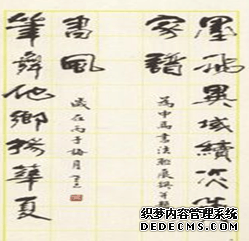 墨飛異域續次仲
家譜
為中馬書法聯展撰
筆舞他鄉揚華夏
書風
歲在丙子梅月
织梦内容管理系统
DEDECMS.COM